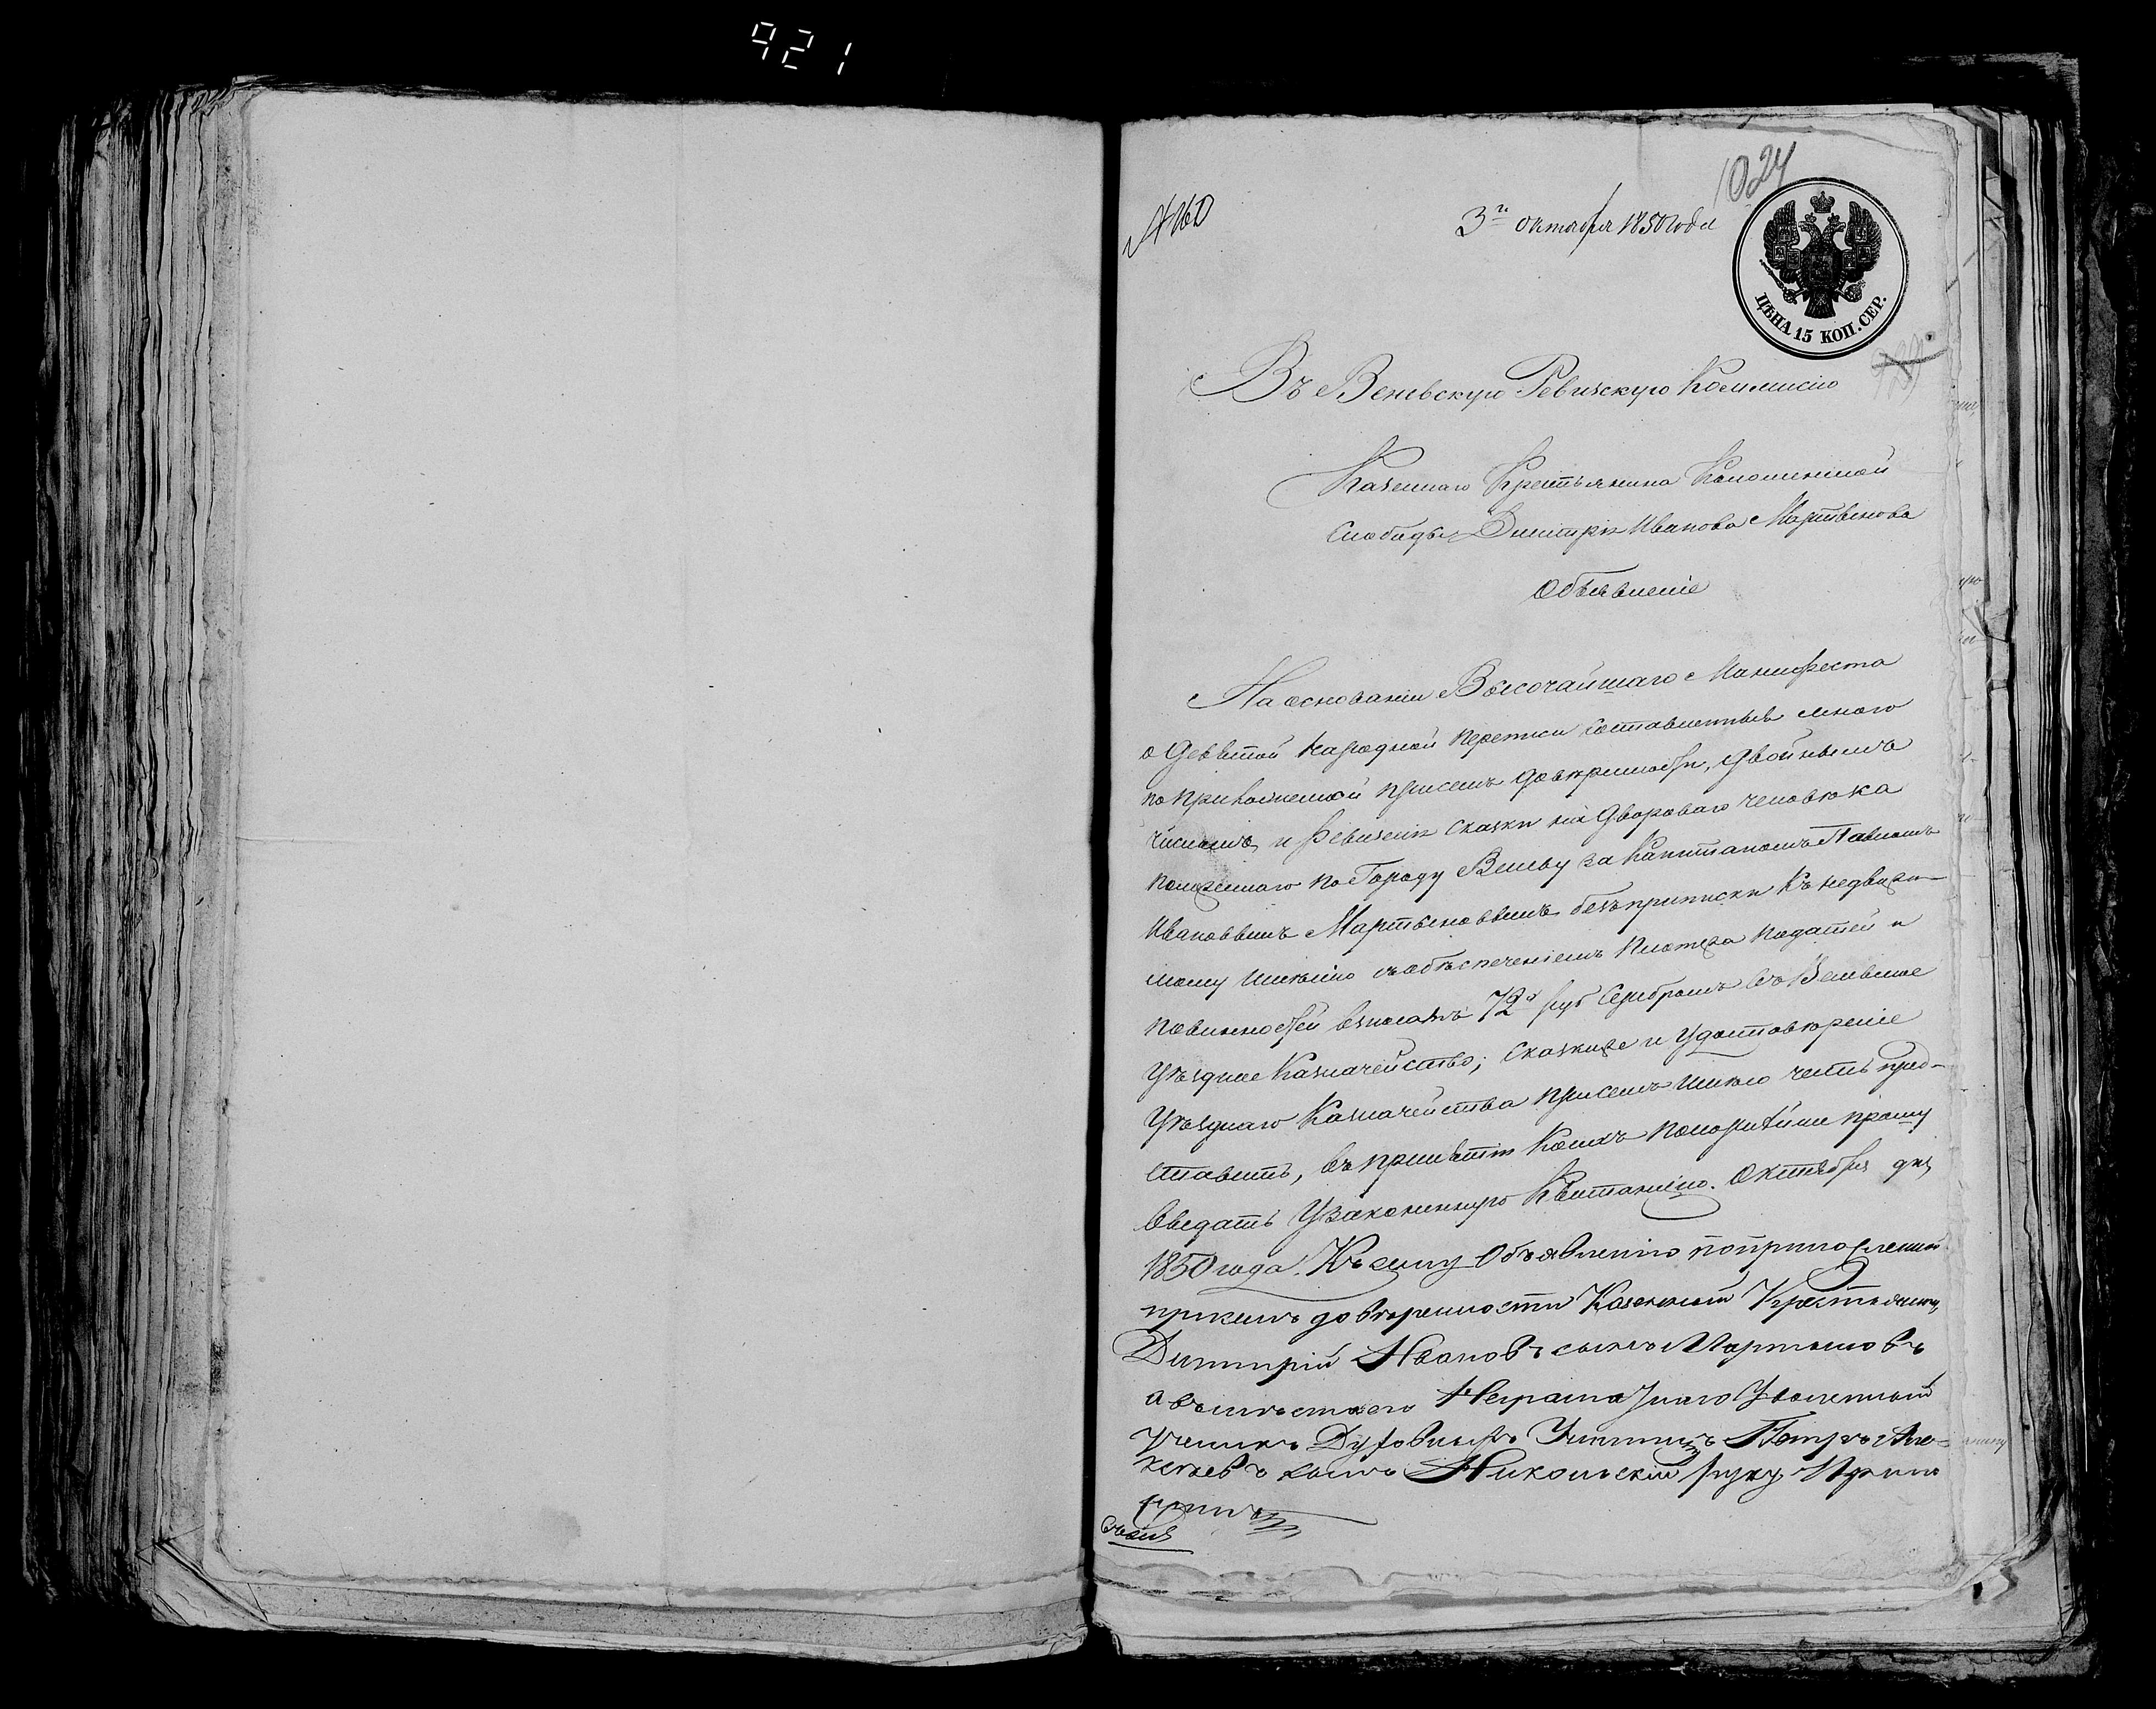 921
1024
№160
3го октября 1850 года
ЦѢНА 15 КОП. СЕР.
Въ Веневскую Ревизскую Коммисію
Казеннаго Крестьянина Коломенской
Слободы Димитрія Иванова Мартынова
Объявленіе
На основаніи Высочайшаго Манифеста
о девятой народной переписи составленныя мною
по приложенной присемъ довѣренности, двойнымъ
числомъ, и Ревизскія сказки на дворового человѣка
по Городу Веневу за Капитаномъ Павломъ
Ивановымъ Мартыновымъ безъ приписки къ недвижи-
мому имѣнію съ обѣспеченіемъ платежа податей и
повинностей взносомъ 72х руб серебромъ въ Веневское
Уѣздное Казначейство; сказки и удостовѣреніе
Уѣзднаго Казначейства присемъ имѣю честь пред-
ставить, въ принятіи коихъ покорнѣйше прошу
выдать узаконенную Квитанцію. Октября дня
1850 года. Къ сему Объявленію по приложенной
присемъ довѣренности Казенный Крестьянинъ
Димитрій Ивановъ сынъ Мартыновъ
а вмѣсто его Неграмотнаго Уволенный
Ученикъ Духовныхъ Училищъ Петръ Але-
ксѣевъ сынъ Никольскій руку Прило
жилъ